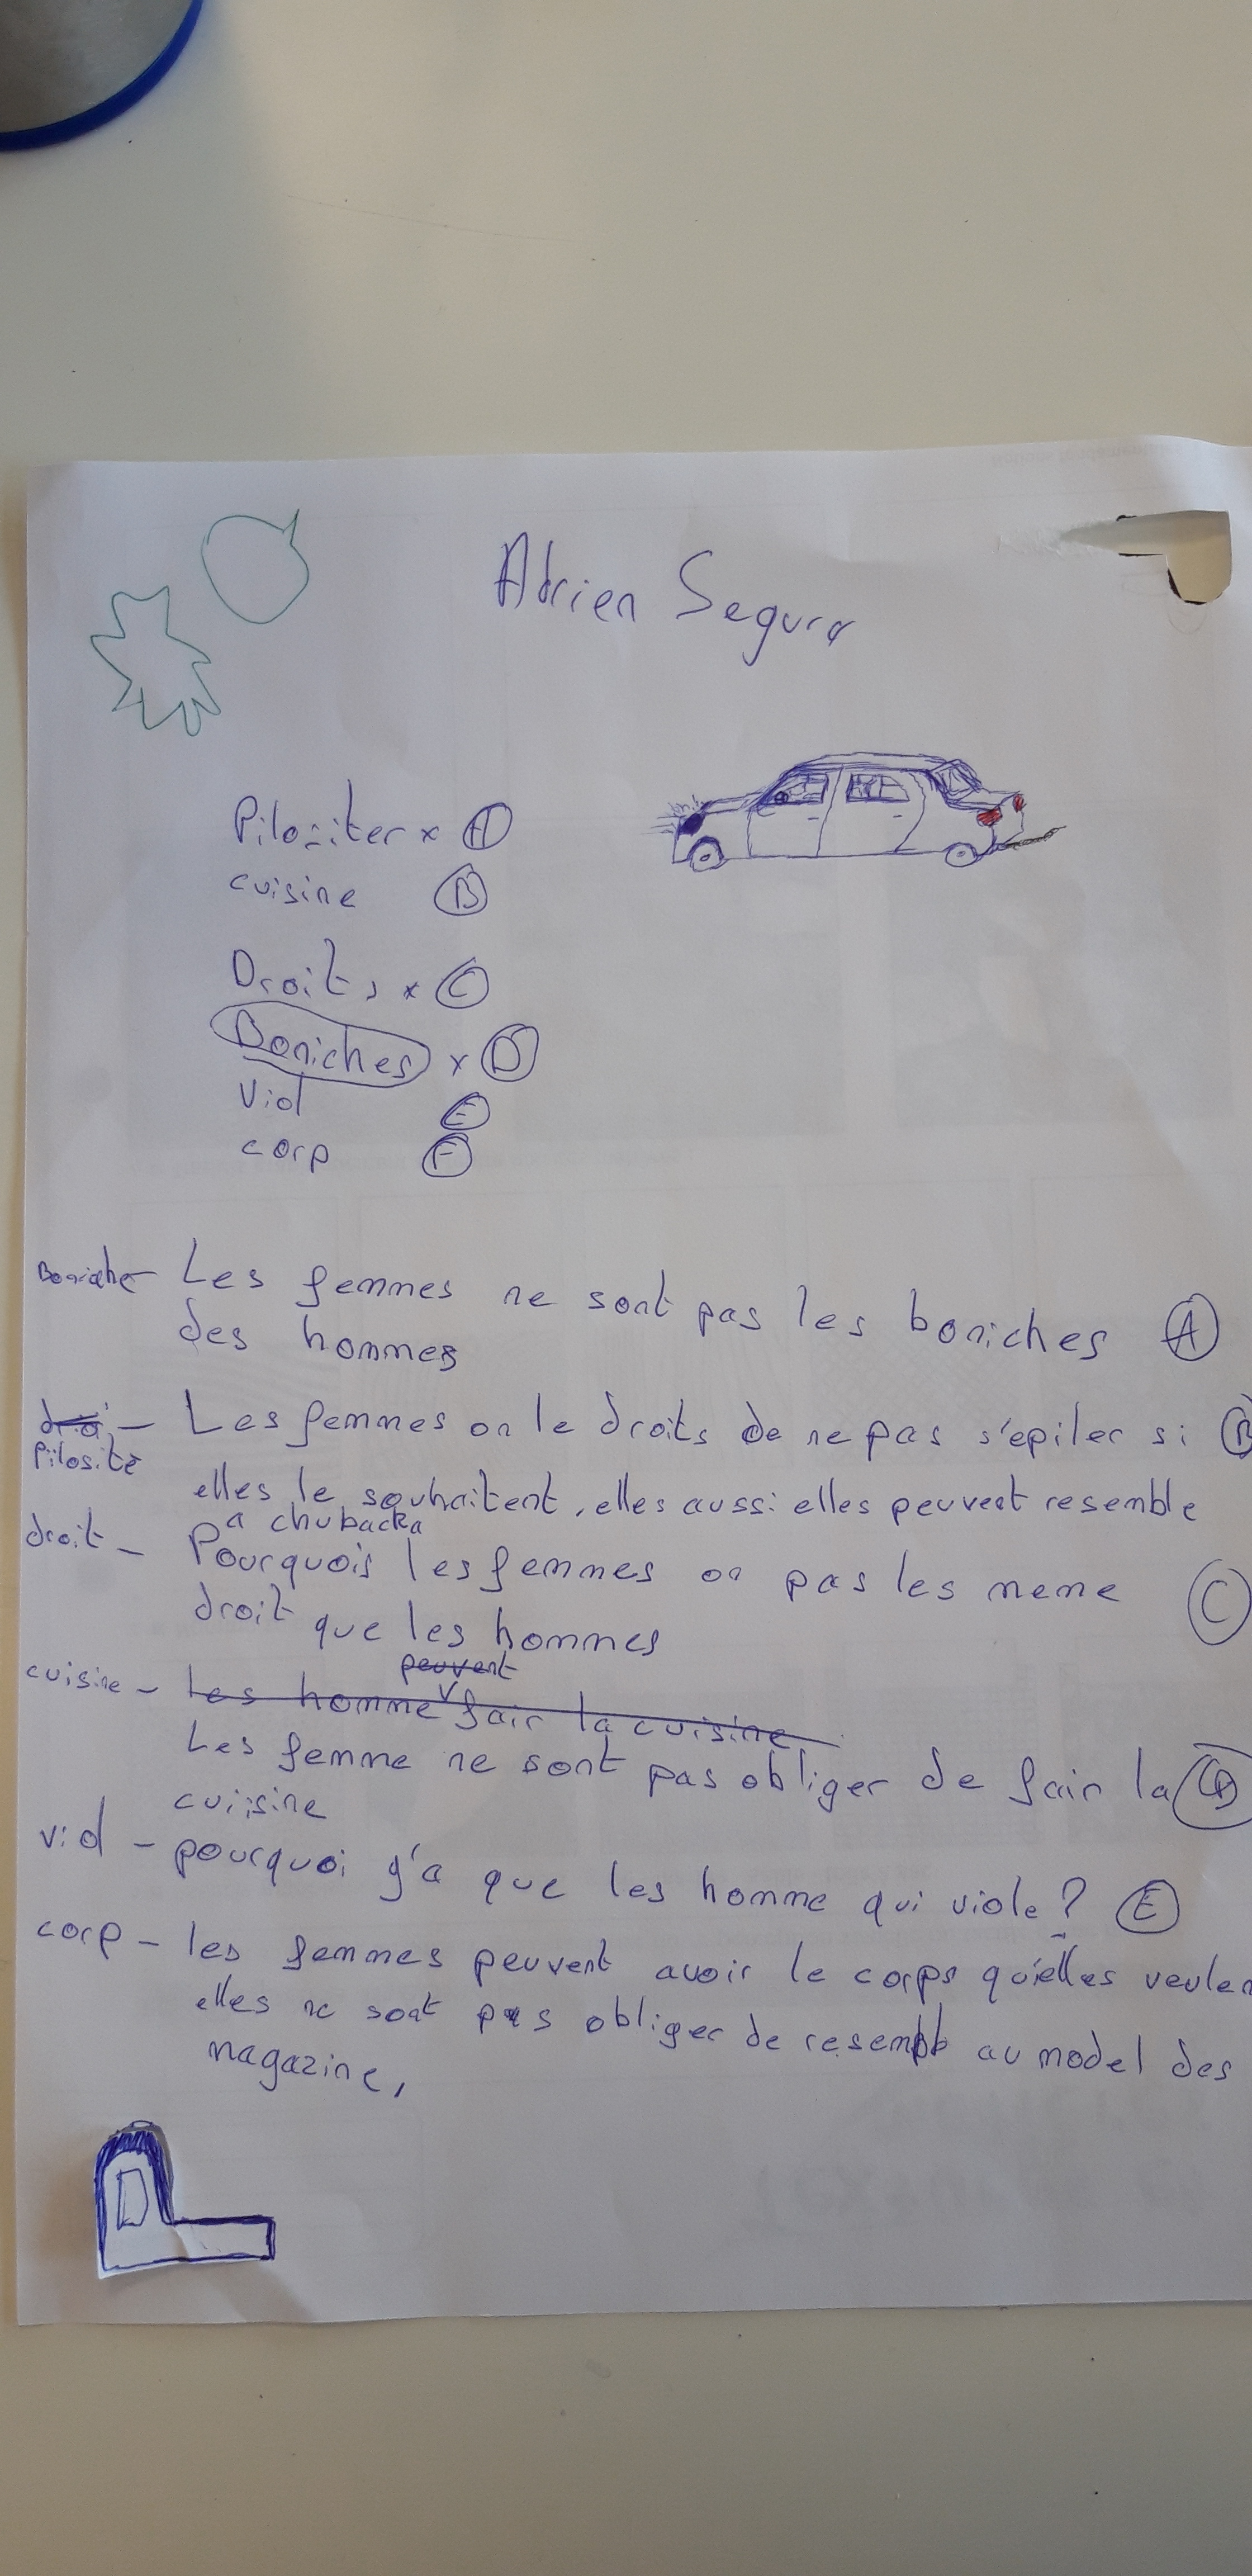 Adrien Segura
Pilositer x A
cuisine B
Droits x C
Boniches x D
Viol E
corp F
Boniche - Les femmes ne sont pas les boniches A
des hommes
droi - Les femmes on le droits de ne pas s'epiler si B
Pilosité
elles le souhaitent, elles aussi elles peuvent resemble
a chubacka
droit - Pourquois les femmes on pas les meme C
droit que les hommes
peuvent
cuisine - Les homme fair la cuisine
Les femme ne sont pas obliger de fair la D
cuisine
viol - pourquoi y'a que les homme qui viole? E
corp - les femmes peuvent avoir le corps qu'elles veulen
elles ne sont pas obliger de resemble au model des
magazine,